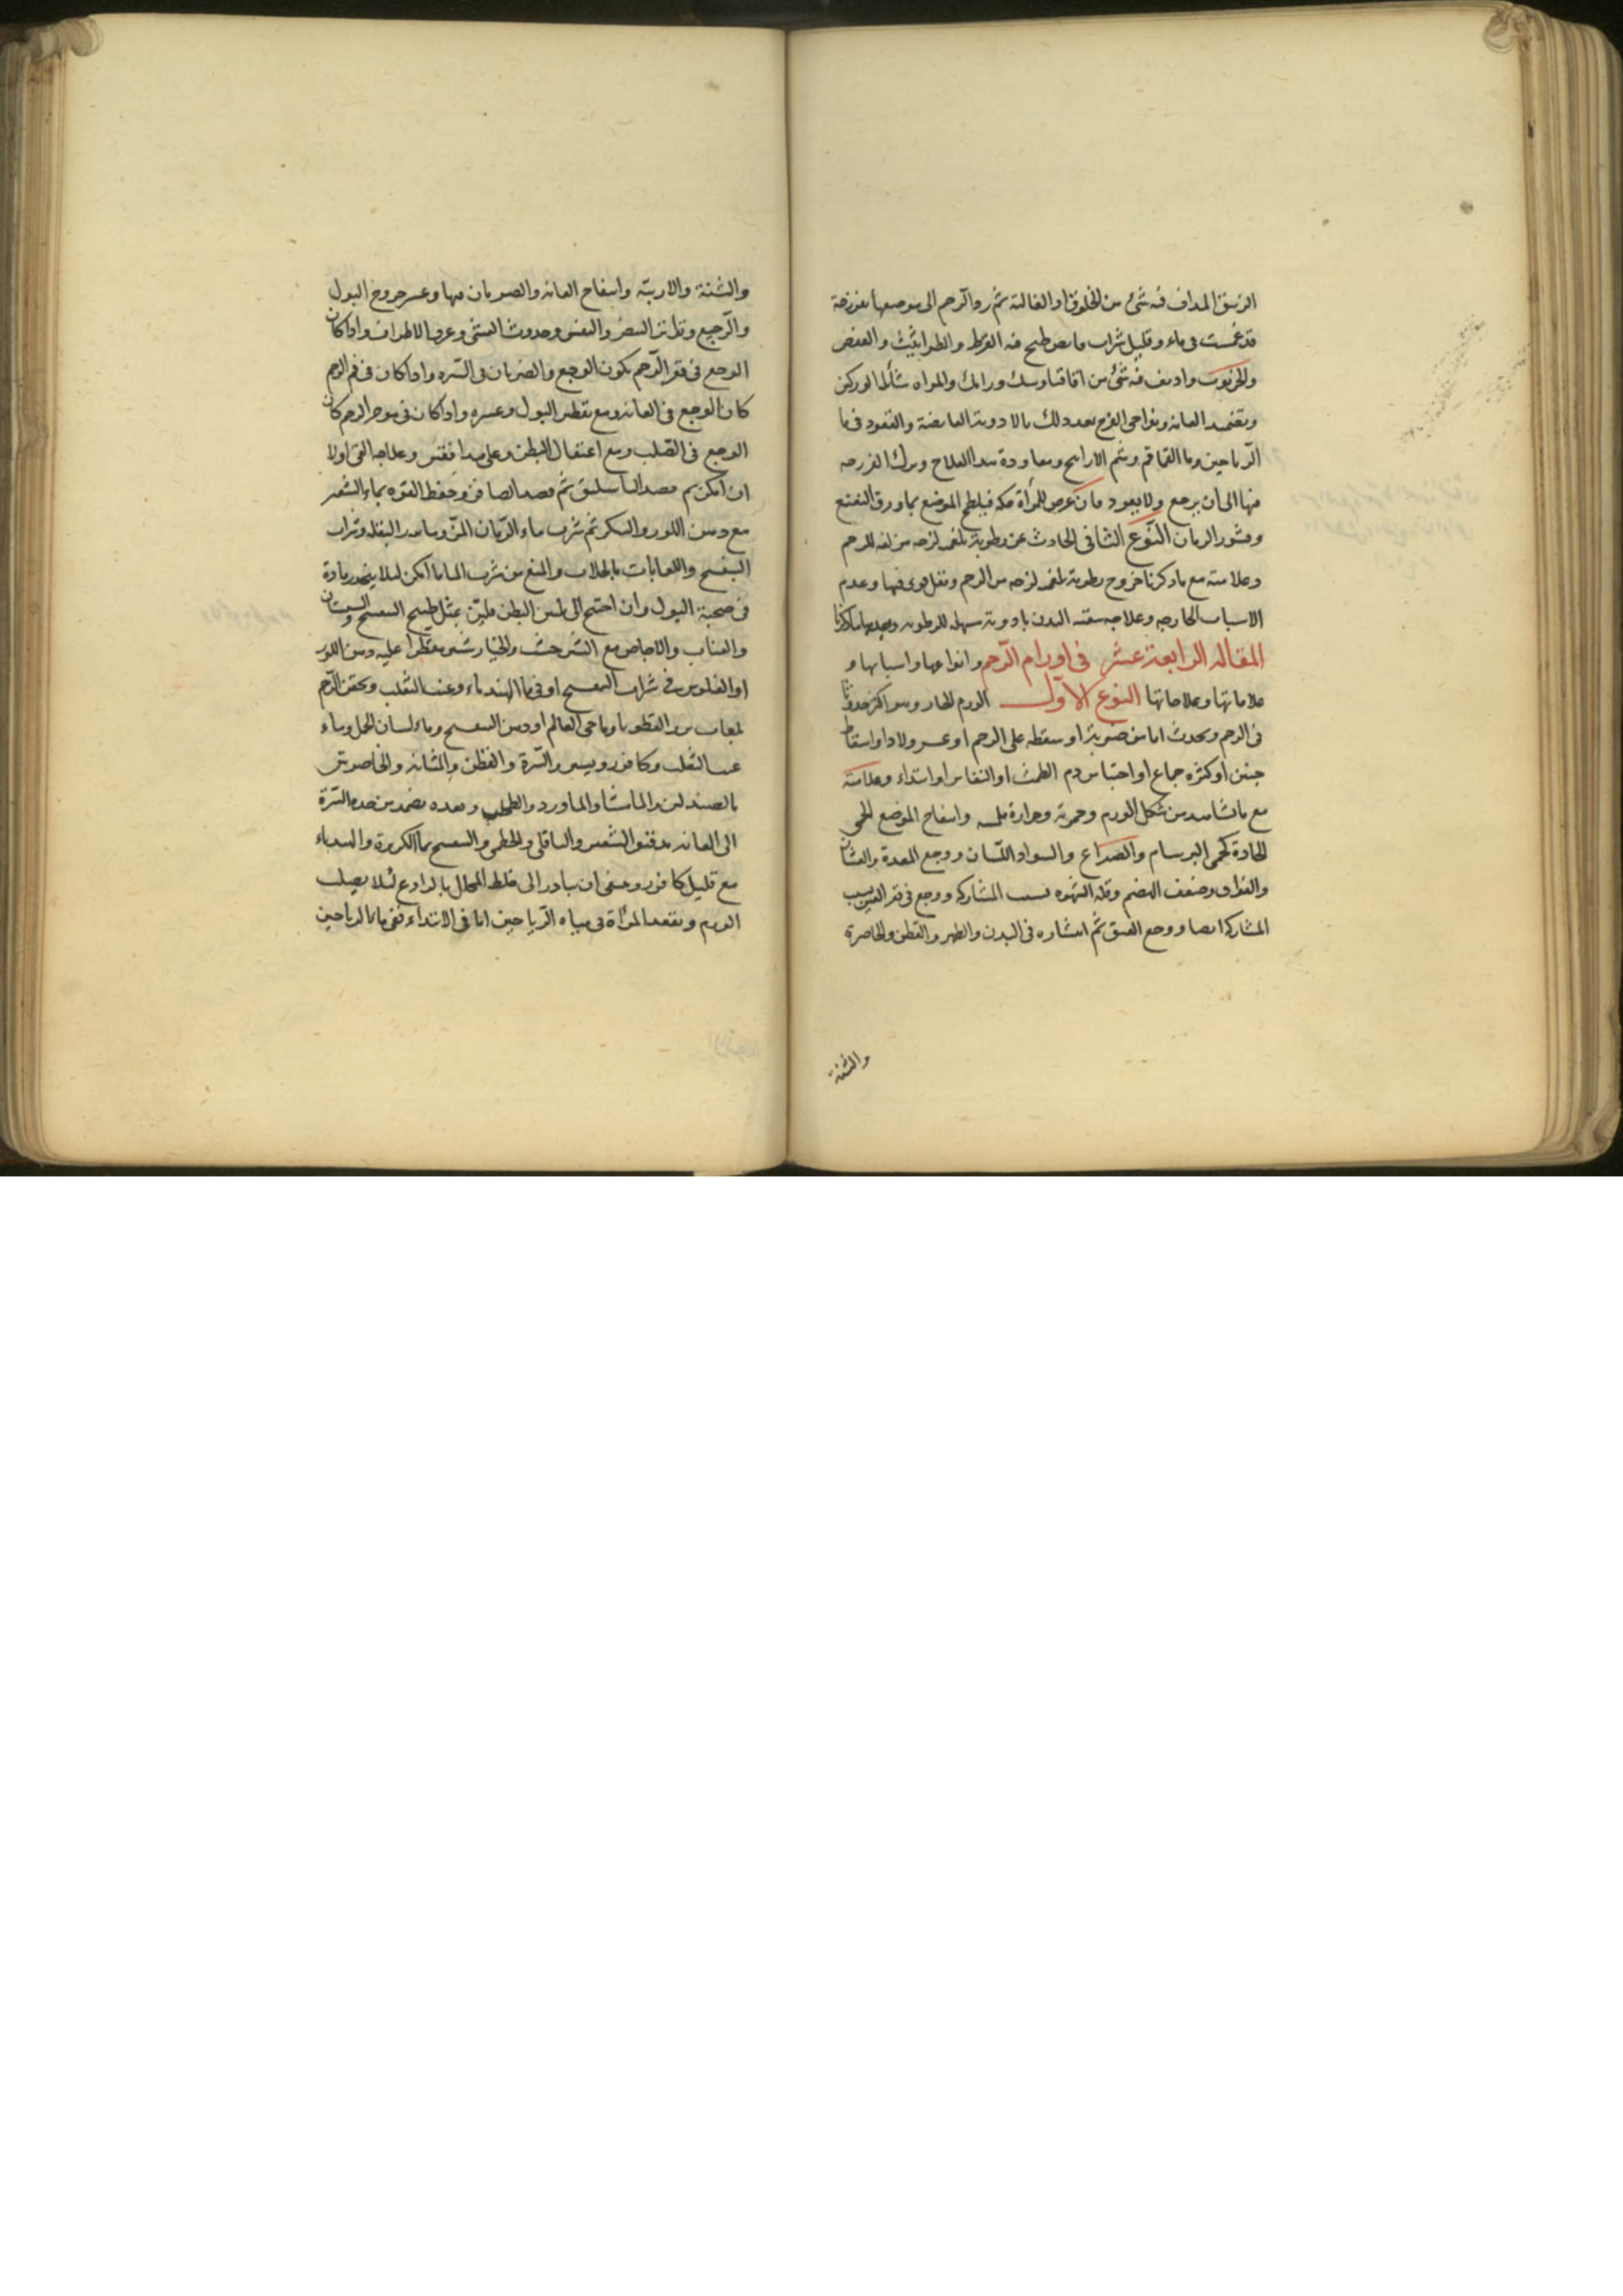 الزنبق المداف فيه شئ من الخلوق او الغالية ثم رد الرحم الى موضعها بفرزجة
قد غمست فى ماء وقليل شراب قابض طبخ فيه القرظ والطراثيث والعفص
والخرنوب واديف فيه شئ من اقاقيا وسك ورامك والمراه شائلة الوركين
وتضمد العانه ونواحى الفرج بعد ذلك بالادوية القابضة والقعود فى ما
الرياحين وما القماقم وشم الاراييح ومعاودة هذا العلاج وترك الفرزجه
فيها الى ان يرجع ولا يعود فان عرض للمرأة حكه فيلطخ الموضع بما ورق النعنع
وقشور الرمان النوع الثانى الحادث عن رطوبة بلغميه لزجه مزلقه للرحم
وعلامته مع ما ذكرنا خروج رطوبة بلغميه لزجه من الرحم وثقل قوى فيها وعدم
الاسباب الخارجه وعلاجه تنقيه البدن بادوية مسهله للرطوبه
المقاله الرابعة عشر فى اورام الرحم وانواعها واسبابها و
علاماتها وعلاجاتها النوع الاول الورم الحار وهو اكثر حدوثا
فى الرحم ويحدث اما من ضربة او سقطه على الرحم او عسر ولاد او اسقاط
جنين او كثره جماع او احتباس دم الطمث او النفاس او ابتداء وعلامته
مع ما تشاهد من شكل الورم وحمرته وحرارة ملمسه وانتفاخ الموضع الحمى
الحادة كحمى البرسام والصداع والسواد اللسان ووجع المعدة والغشيان
والفواق وضعف الهضم وقله الشهوه بسبب المشاركه ووجع فى قعر العين بسبب
المشاركه ايضا ووجع العنق ثم انتشاره فى البدن والظهر والقطن والخاصرة
والثنة
والثنة والاربيّه وانتفاخ العانه والضربان فيها وعسر خروج البول
والرجيع وتواتر النبض والنفس وحدوث الغشى وعرق الاطراف واذا كان
الوجع فى قعر الرحم يكون الوجع والضربان فى السره واذا كان فى فم الرحم
كان الوجع فى العانه ومع تقطير البول وعسره واذا كان فى موخر الرحم كان
الوجع فى الصلب ومع اعتقال البطن وعلى هذا فقس وعلاجه القئ اولا
ان امكن ثم فصد الباسليق ثم فصد الصافن وحفظ القوه بماء الشعير
مع دهن اللوز والسكر ثم شرب ماء الرمان المز وماء بزر البقله وشراب
البنفسج واللعابات بالجلاب والمنع من شرب الماء ما امكن لئلا ينحدر مادة
فى صحبة البول وان احتيج الى لين البطن فليّن بمثل طبيخ البنفسج والسبستان
والعناب والاجاص مع الشيرخشت والخيارشنبر مقطرا عليه دهن اللوز
او الفلوس فى شراب البنفسج او فى ما الهندباء وعنب الثعلب وتحقن الرحم
بلعاب بزر القطونا وما حى العالم او دهن البنفسج وماء لسان الحمل وماء
عنب الثعلب وكافور ويبرد السرة والقطن والمثانه والخاصرتين
بالصندلين والماميثا والماورد والطحلب وبعده يضمد من حد السرة
الى العانه بدقيق الشعير والباقلى والخطمى والبنفسج بما الكزبرة والهندباء
مع قليل كافور وينبغى ان يبادر الى خلط المحلل بالرادع لئلا يصلب
الورم وتقعد المرأة فى مياه الرياحين اما فى الابتداء ففى ماء الرياحين